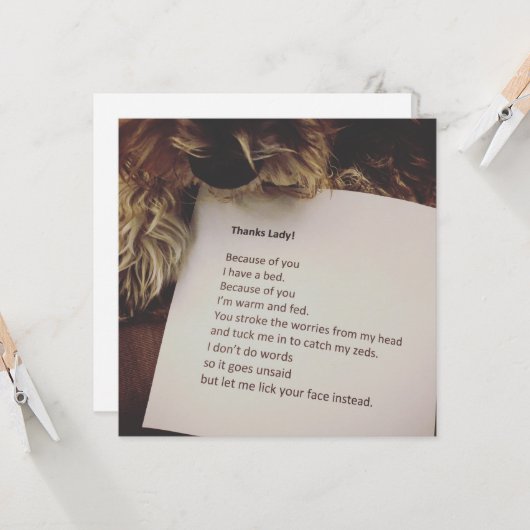 Thanks Lady!
Because of you
I have a bed.
Because of you
I'm warm and fed.
You stroke the worries from my head
and tuck me in to catch my zeds.
I don't do words
so it goes unsaid
but let me lick your face instead.